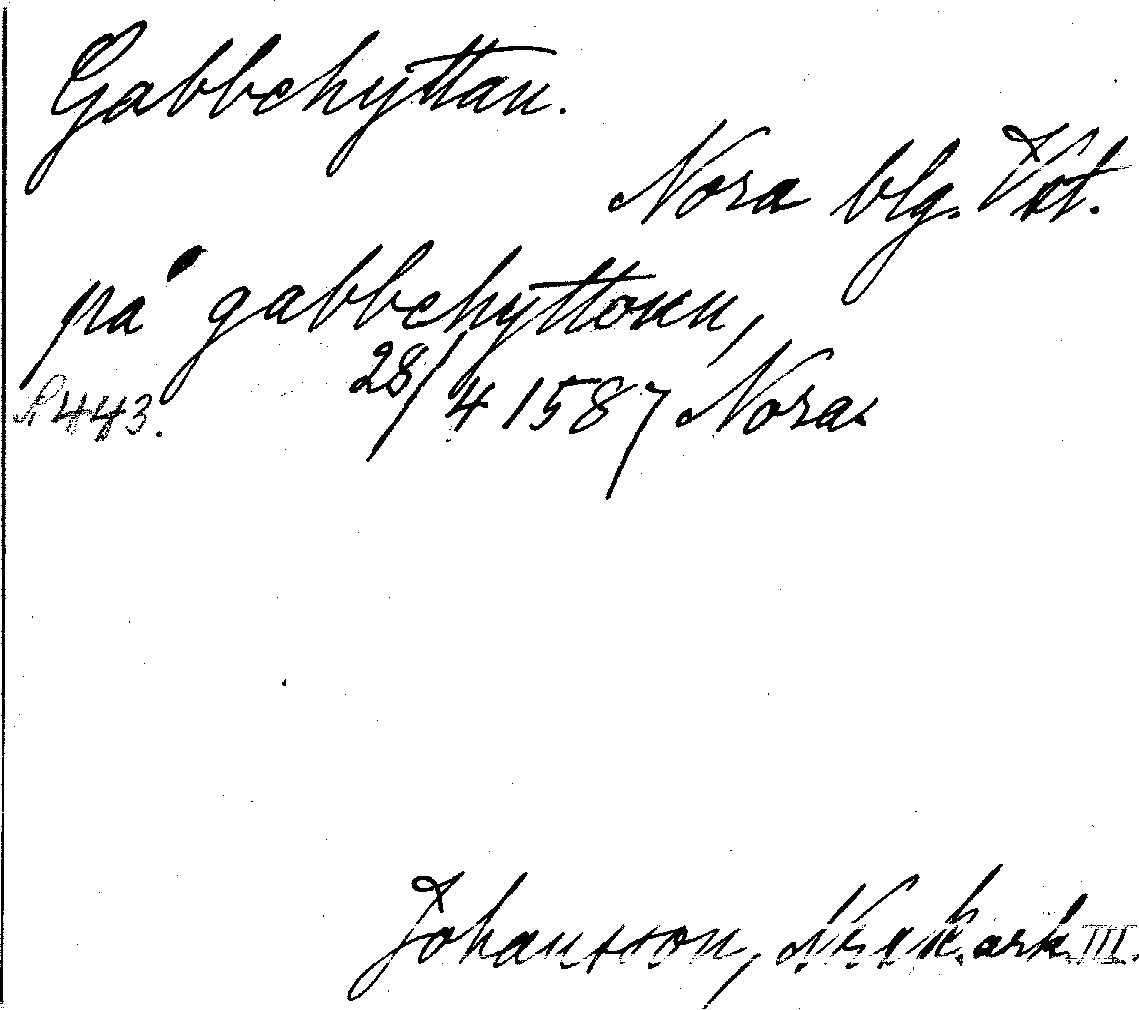 Gabbehyttan.
Nora blg. Vstt.
på gabbehyttonn,
28/4 1587 Nora.
443.
Johansson, ark. III.